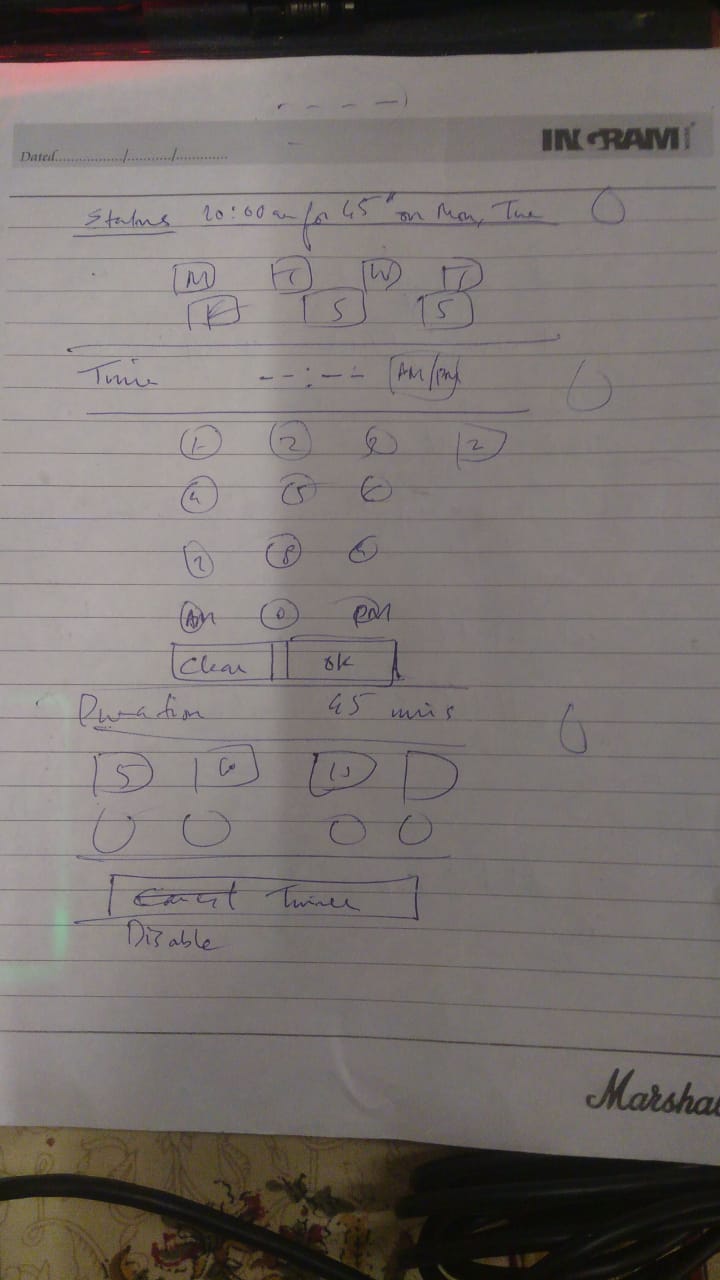 Dated................/.........../.............
INGRAM
Status 10:00 am for 45" on Mon, Tue
M T W T
F S S
Time --:-- AM/PM
1 2
4 5 6
8
AM 0 PM
Clear OK
Duration 45 mins
5 10
Cancel Timer
Disable
Marsha